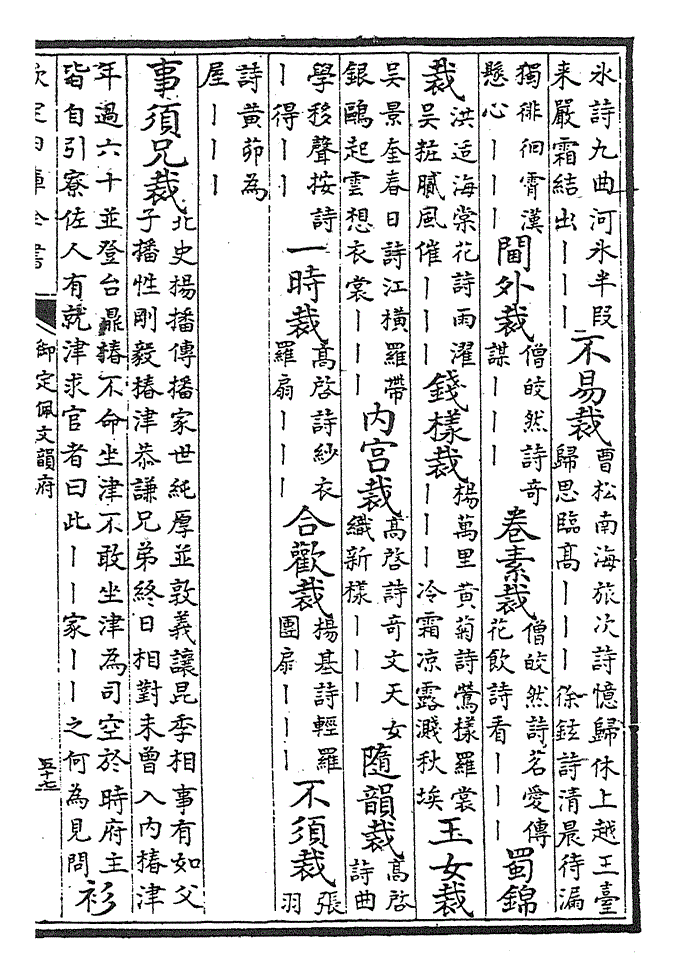 氷詩九曲河氷半段来嚴霜結出｜｜｜不易裁曹松南海旅次詩憶歸休上越王臺歸思臨髙｜｜｜徐鉉詩清晨待漏
獨徘徊霄漢懸心｜｜｜閫外裁僧皎然詩奇謀｜｜｜卷素裁僧皎然詩茗愛傳花飲詩看｜｜｜蜀錦
裁洪适海棠花詩雨濯吳粧膩風催｜｜｜錢樣裁楊萬里黃菊詩鶯樣羅裳｜｜｜冷霜凉露濺秋埃玉女裁
吳景奎春日詩江橫羅帶銀鷗起雲想衣裳｜｜｜内宫裁髙啓詩奇文天女織新樣｜｜｜隨韻裁髙啓詩曲
學移聲按詩｜得｜｜一時裁髙啓詩紗衣羅扇｜｜｜合歡裁楊基詩輕羅團扇｜｜｜不須裁張羽
詩黃茆為屋｜｜｜
事須兄裁北史楊播傳播家世純厚並敦義讓昆季相事有如父子播性剛毅椿津恭謙兄弟終日相對未曾入内椿津
年過六十並登台鼎椿不命坐津不敢坐津為司空於時府主皆自引寮佐人有就津求官者曰此｜｜家｜｜之何為見問衫
欽定四庫全書
御定佩文韻府
五十七